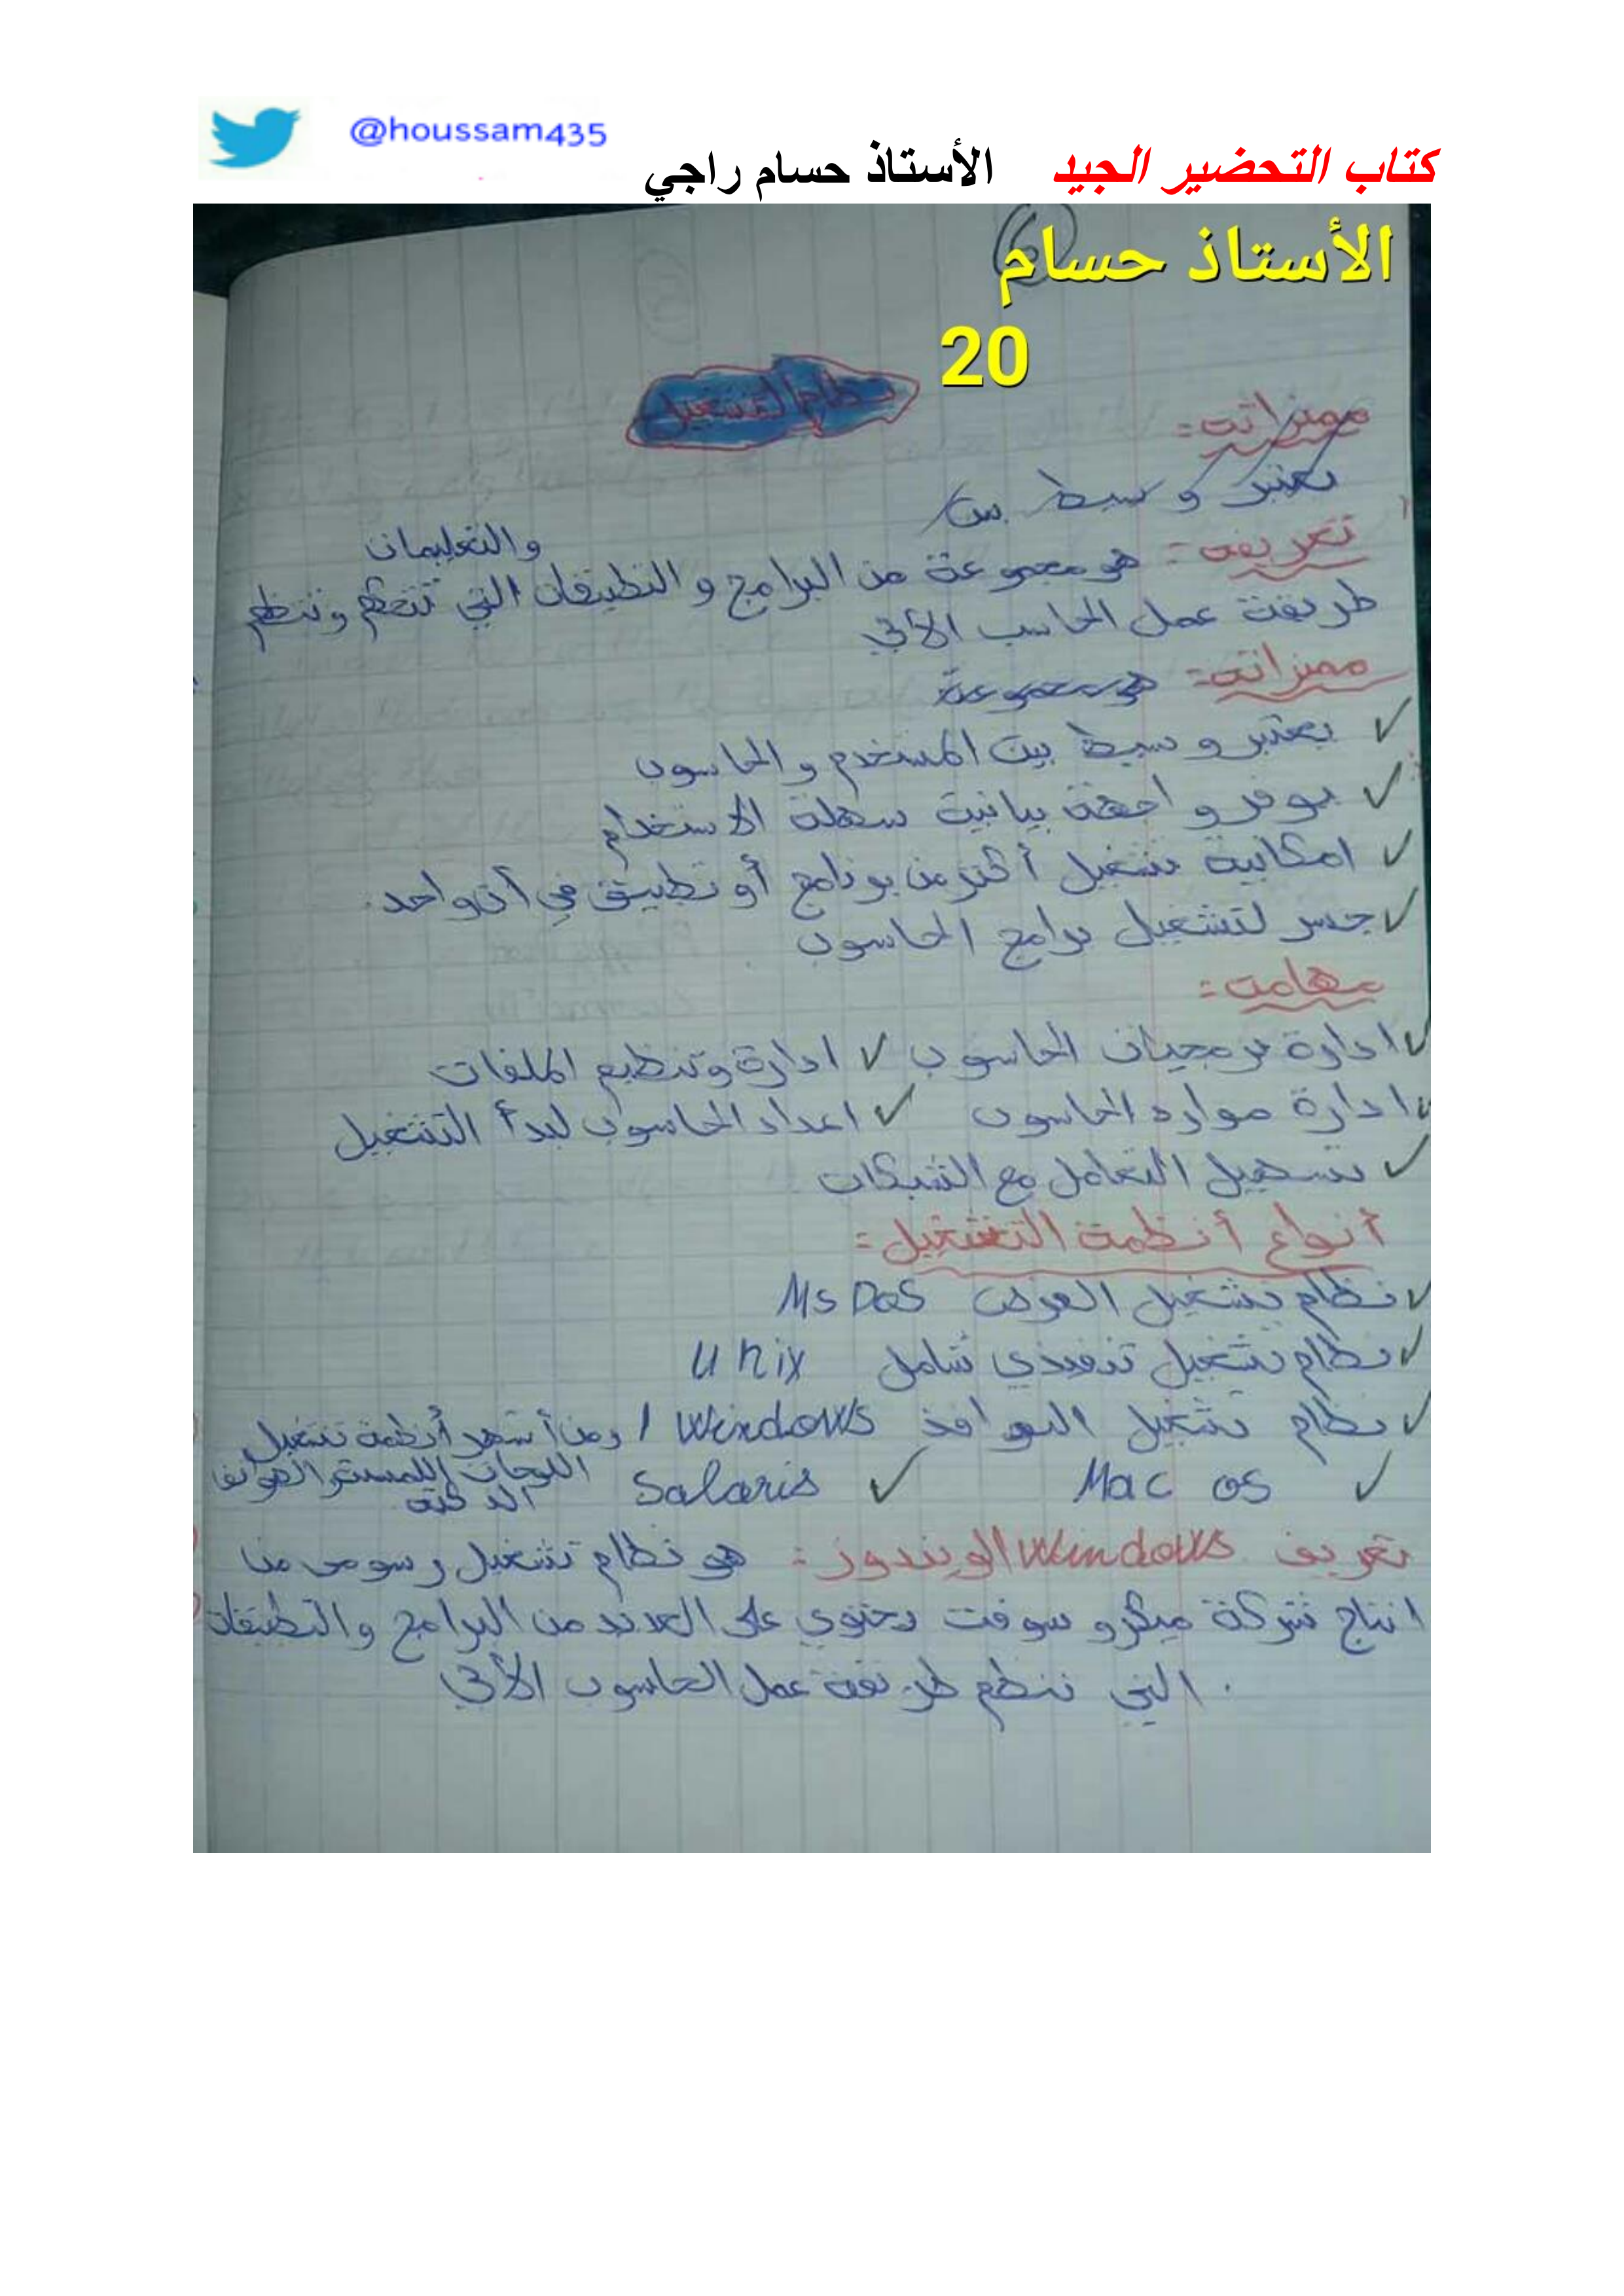 @houssam435
كتاب التحضير الجيد الأستاذ حسام راجي
الأستاذ حسام
6
20
نظام التشغيل
مميزاته:
يعتبر وسيط بين
والتعليمات
تعريفه: هو مجموعة من البرامج و التطبيقات التي تتحكم وتنظم
طريقة عمل الحاسب الألي
مميزاته: هو مجموعة
✓ يعتبر وسيط بين المستخدم والحاسوب
✓ يوفر واجهة بيانية سهلة الاستخدام
✓ امكانية تشغيل أكثر من برنامج أو تطبيق في آن واحد.
✓ جسر لتشغيل برامج الحاسوب
مهامه:
✓ ادارة برمجيات الحاسوب ✓ ادارة وتنظيم الملفات
✓ ادارة موارد الحاسوب ✓ اعداد الحاسوب لبدأ التشغيل
✓ تسهيل التعامل مع الشبكات
أنواع أنظمة التشغيل:
✓ نظام تشغيل القرص Ms Dos
✓ نظام تشغيل تنفيذي شامل Unix
✓ نظام تشغيل النوافذ Windows / ومن أشهر أنظمة تشغيل
✓ Mac os ✓ Salaris اللوحات والهواتف
الذكية
تعريف Windows الويندوز: هو نظام تشغيل رسومي من
انتاج شركة ميكروسوفت يحتوي على العديد من البرامج والتطبيقات
التي تنظم طريقة عمل الحاسوب الألي.